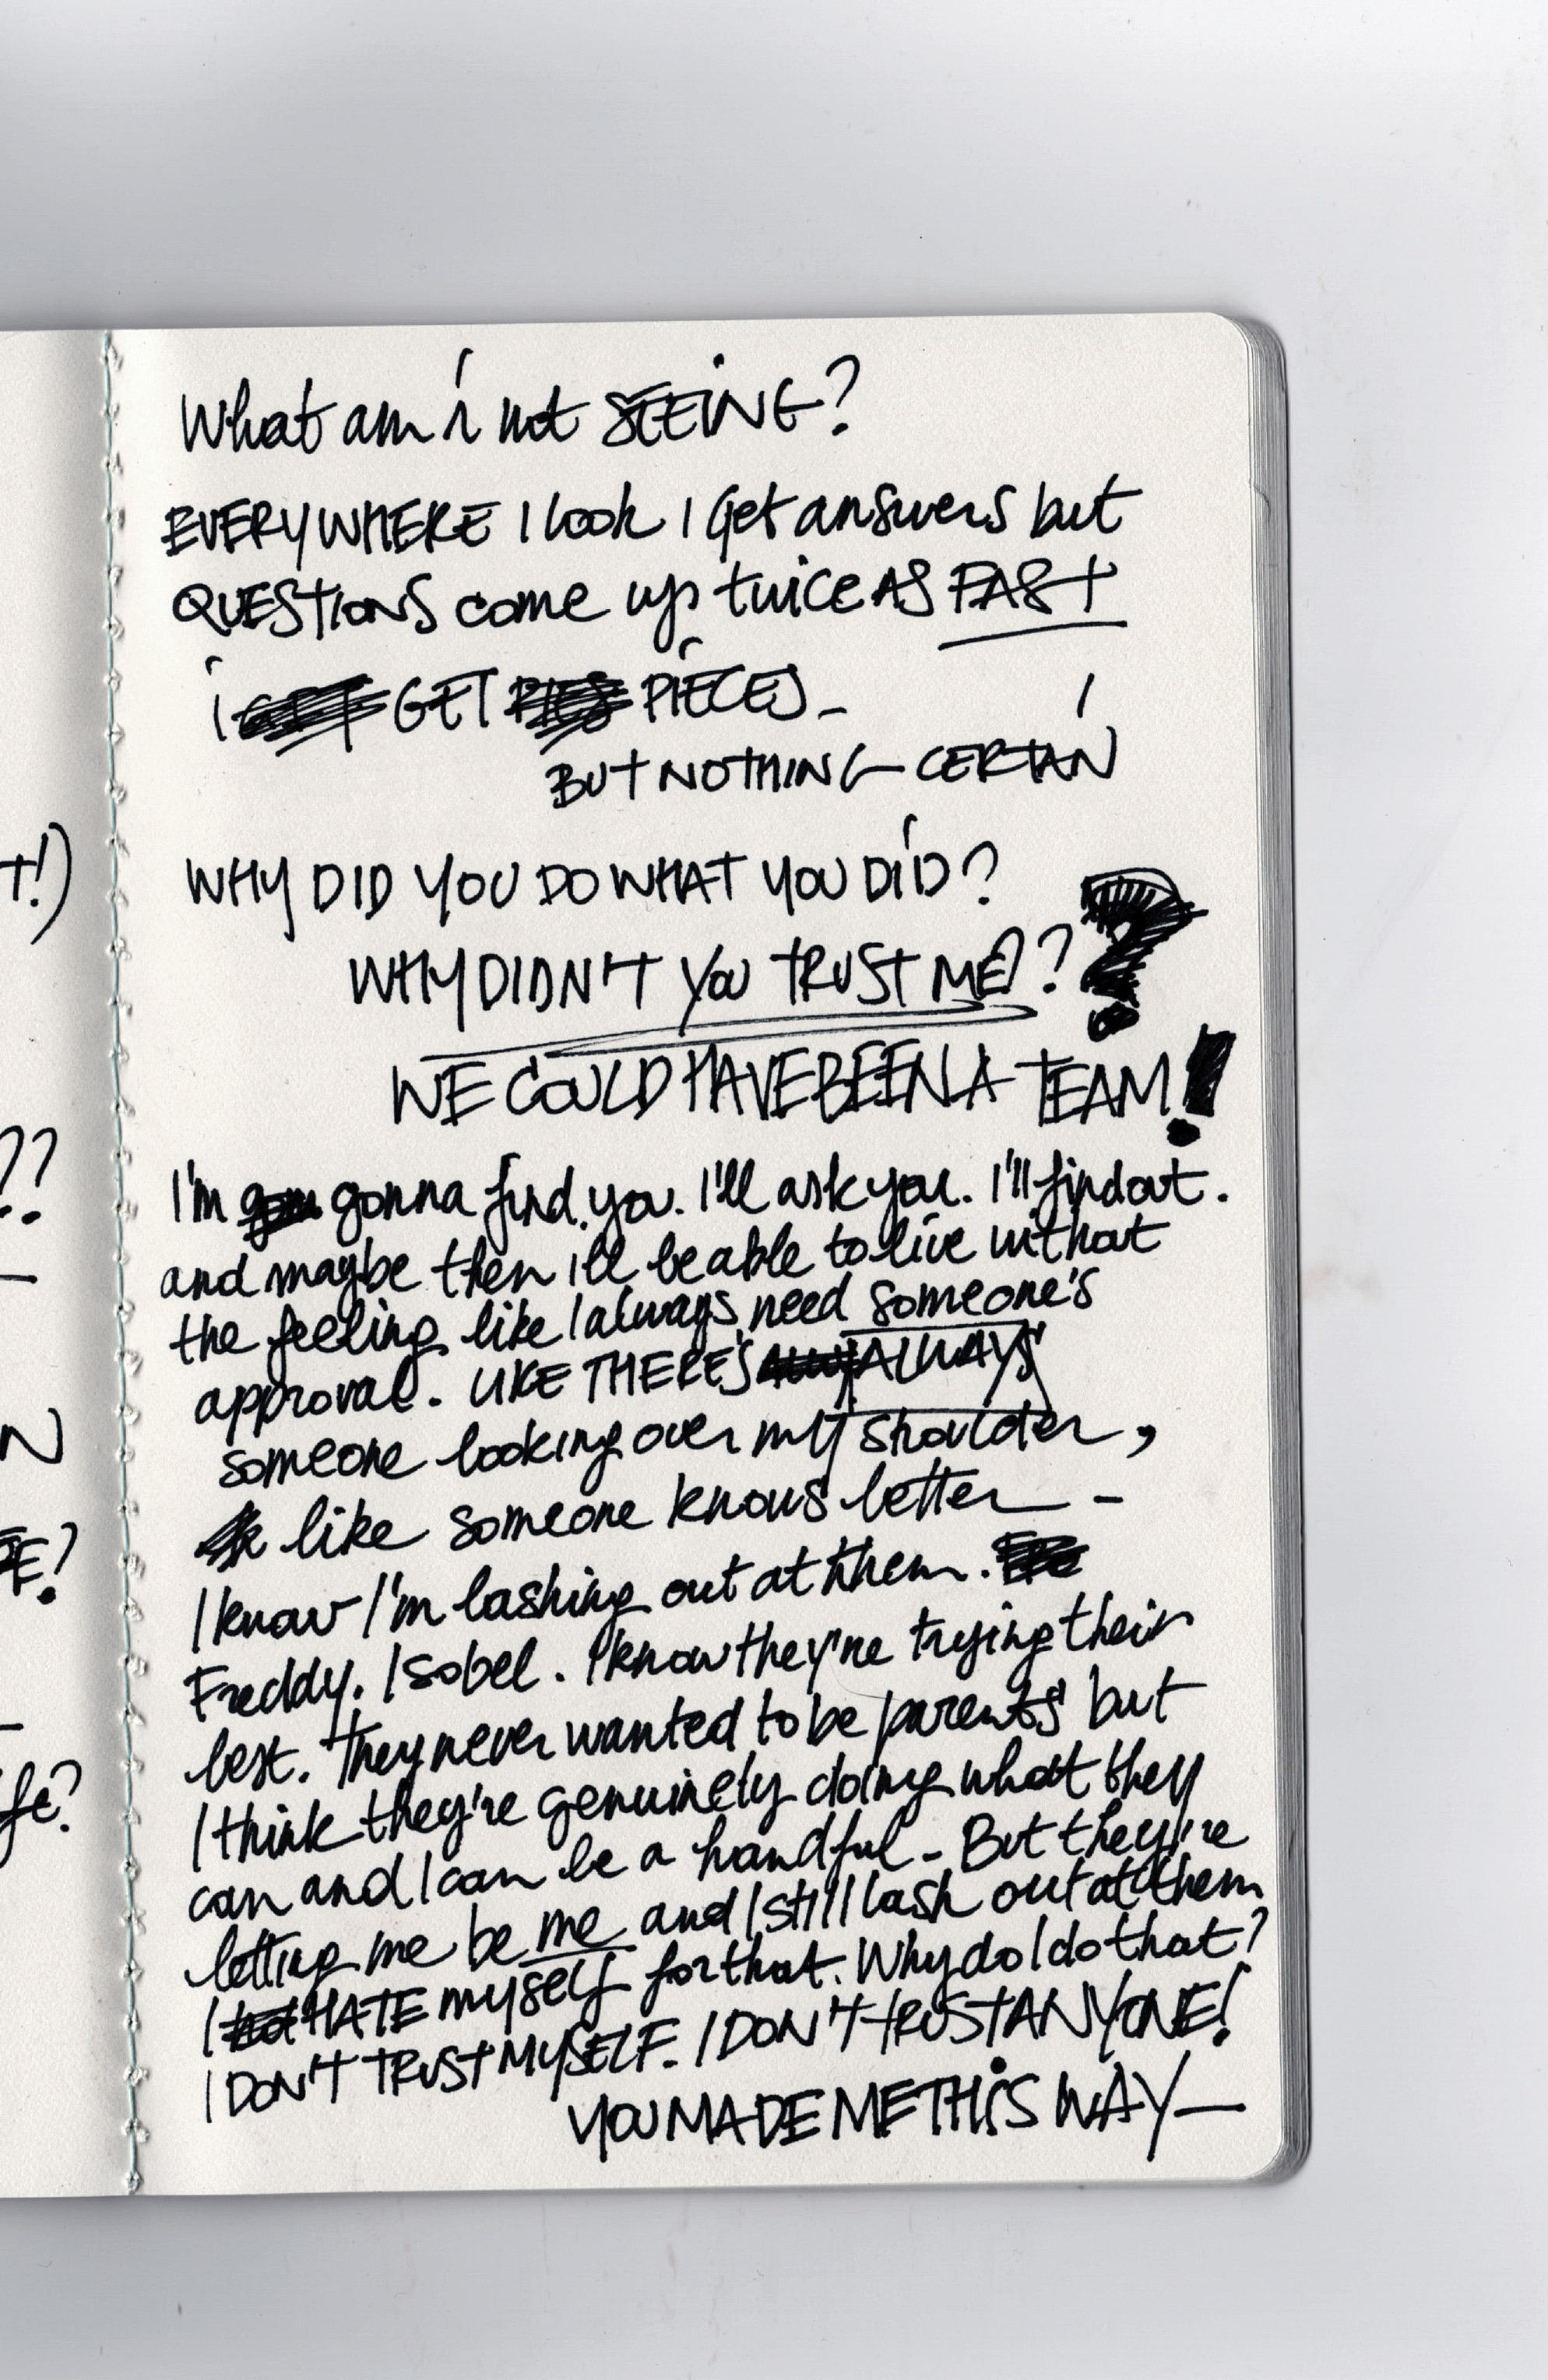 What am i not SEEiNG?
EVERYWHERE I look I Get answers but
QUESTIONS come up twice AS FAST
i GET GET PiECES -
BUT NOTHING CERTAiN
WHY DID YOU DO WHAT YOU DiD?
WHY DIDN'T YOU TRUST ME?? ?
WE COULD HAVE BEEN A TEAM!
I'm gonna find you. I'll ask you. I'll find out.
and maybe then ill be able to live without
the feeling like I always need someone's
approval. LIKE THERE'S ALWAYS
someone looking over my shoulder,
like someone knows better -
I know I'm lashing out at them.
Freddy. Isobel. I know they're trying their
best. They never wanted to be parents but
I think they're genuinely doing what they
can and I can be a handful - But they're
letting me be me and I still lash out at them
for that. Why do I do that?
I HATE myself
I DON'T TRUST MYSELF. I DON'T TRUST ANYONE!
YOU MADE ME THiS WAY -
T!)
??
N
E?
fe?